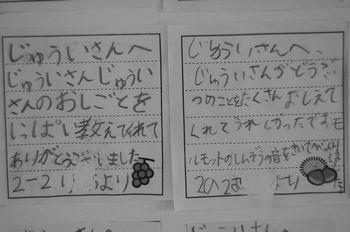 じゅういさんへ
じゅういさんじゅうい
さんのおしごとを
いっぱい教えてくれて
ありがとうございました
2-2 より
じゅういさんへ、
じゅういさんがどうぶ
つのことをたくさんおしえて
くれてうれしかったですモ
ルモットのしんぞうの音をきいて
より